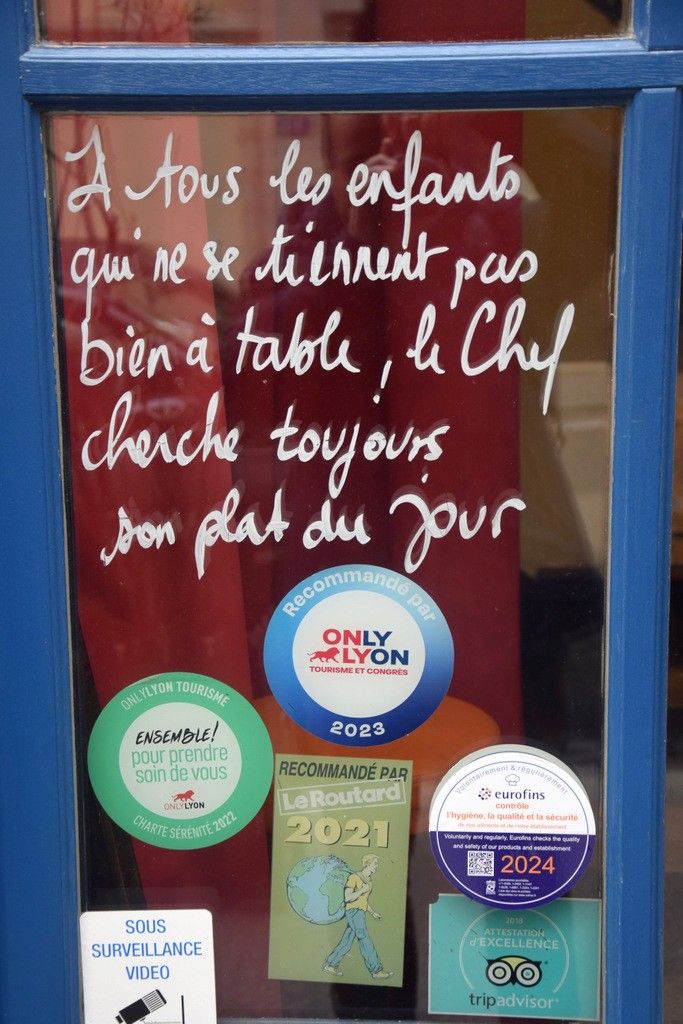 À tous les enfants
qui ne se tiennent pas
bien à table, le Chef
cherche toujours
son plat du jour
Recommandé par
ONLY
LYON
TOURISME ET CONGRÈS
2023
ONLYLYON TOURISME
ENSEMBLE!
pour prendre
soin de vous
ONLYLYON
CHARTE SÉRÉNITÉ 2022
RECOMMANDÉ PAR
Le Routard
2021
Volontairement & régulièrement
eurofins
contrôle
l'hygiène, la qualité et la sécurité
de nos aliments et de notre établissement
Voluntarily and regularly, Eurofins checks the quality
and safety of our products and establishment
2024
2018
ATTESTATION
d'EXCELLENCE
tripadvisor
SOUS
SURVEILLANCE
VIDEO